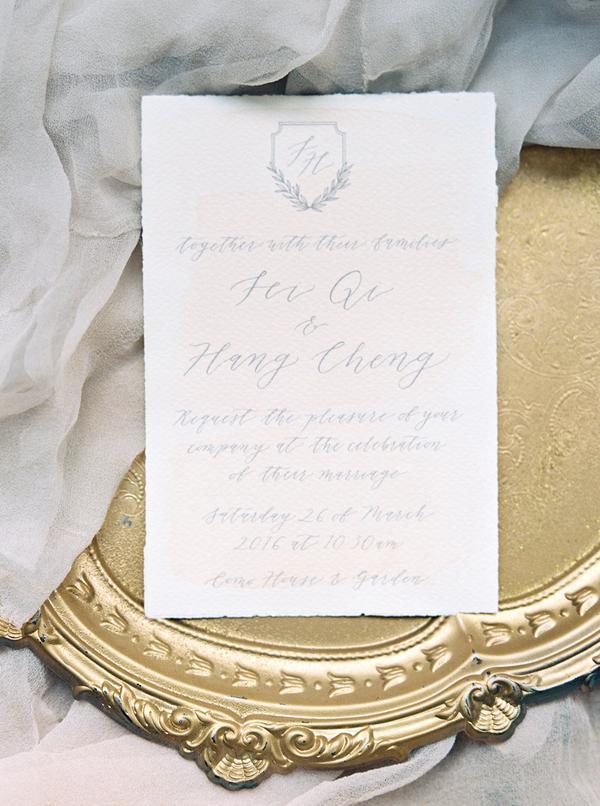 FH
together with their families
Fei Qi
&
Hang Cheng
Request the pleasure of your
company at the celebration
of their marriage
Saturday 26 of March
2016 at 10 30am
Como House & Garden